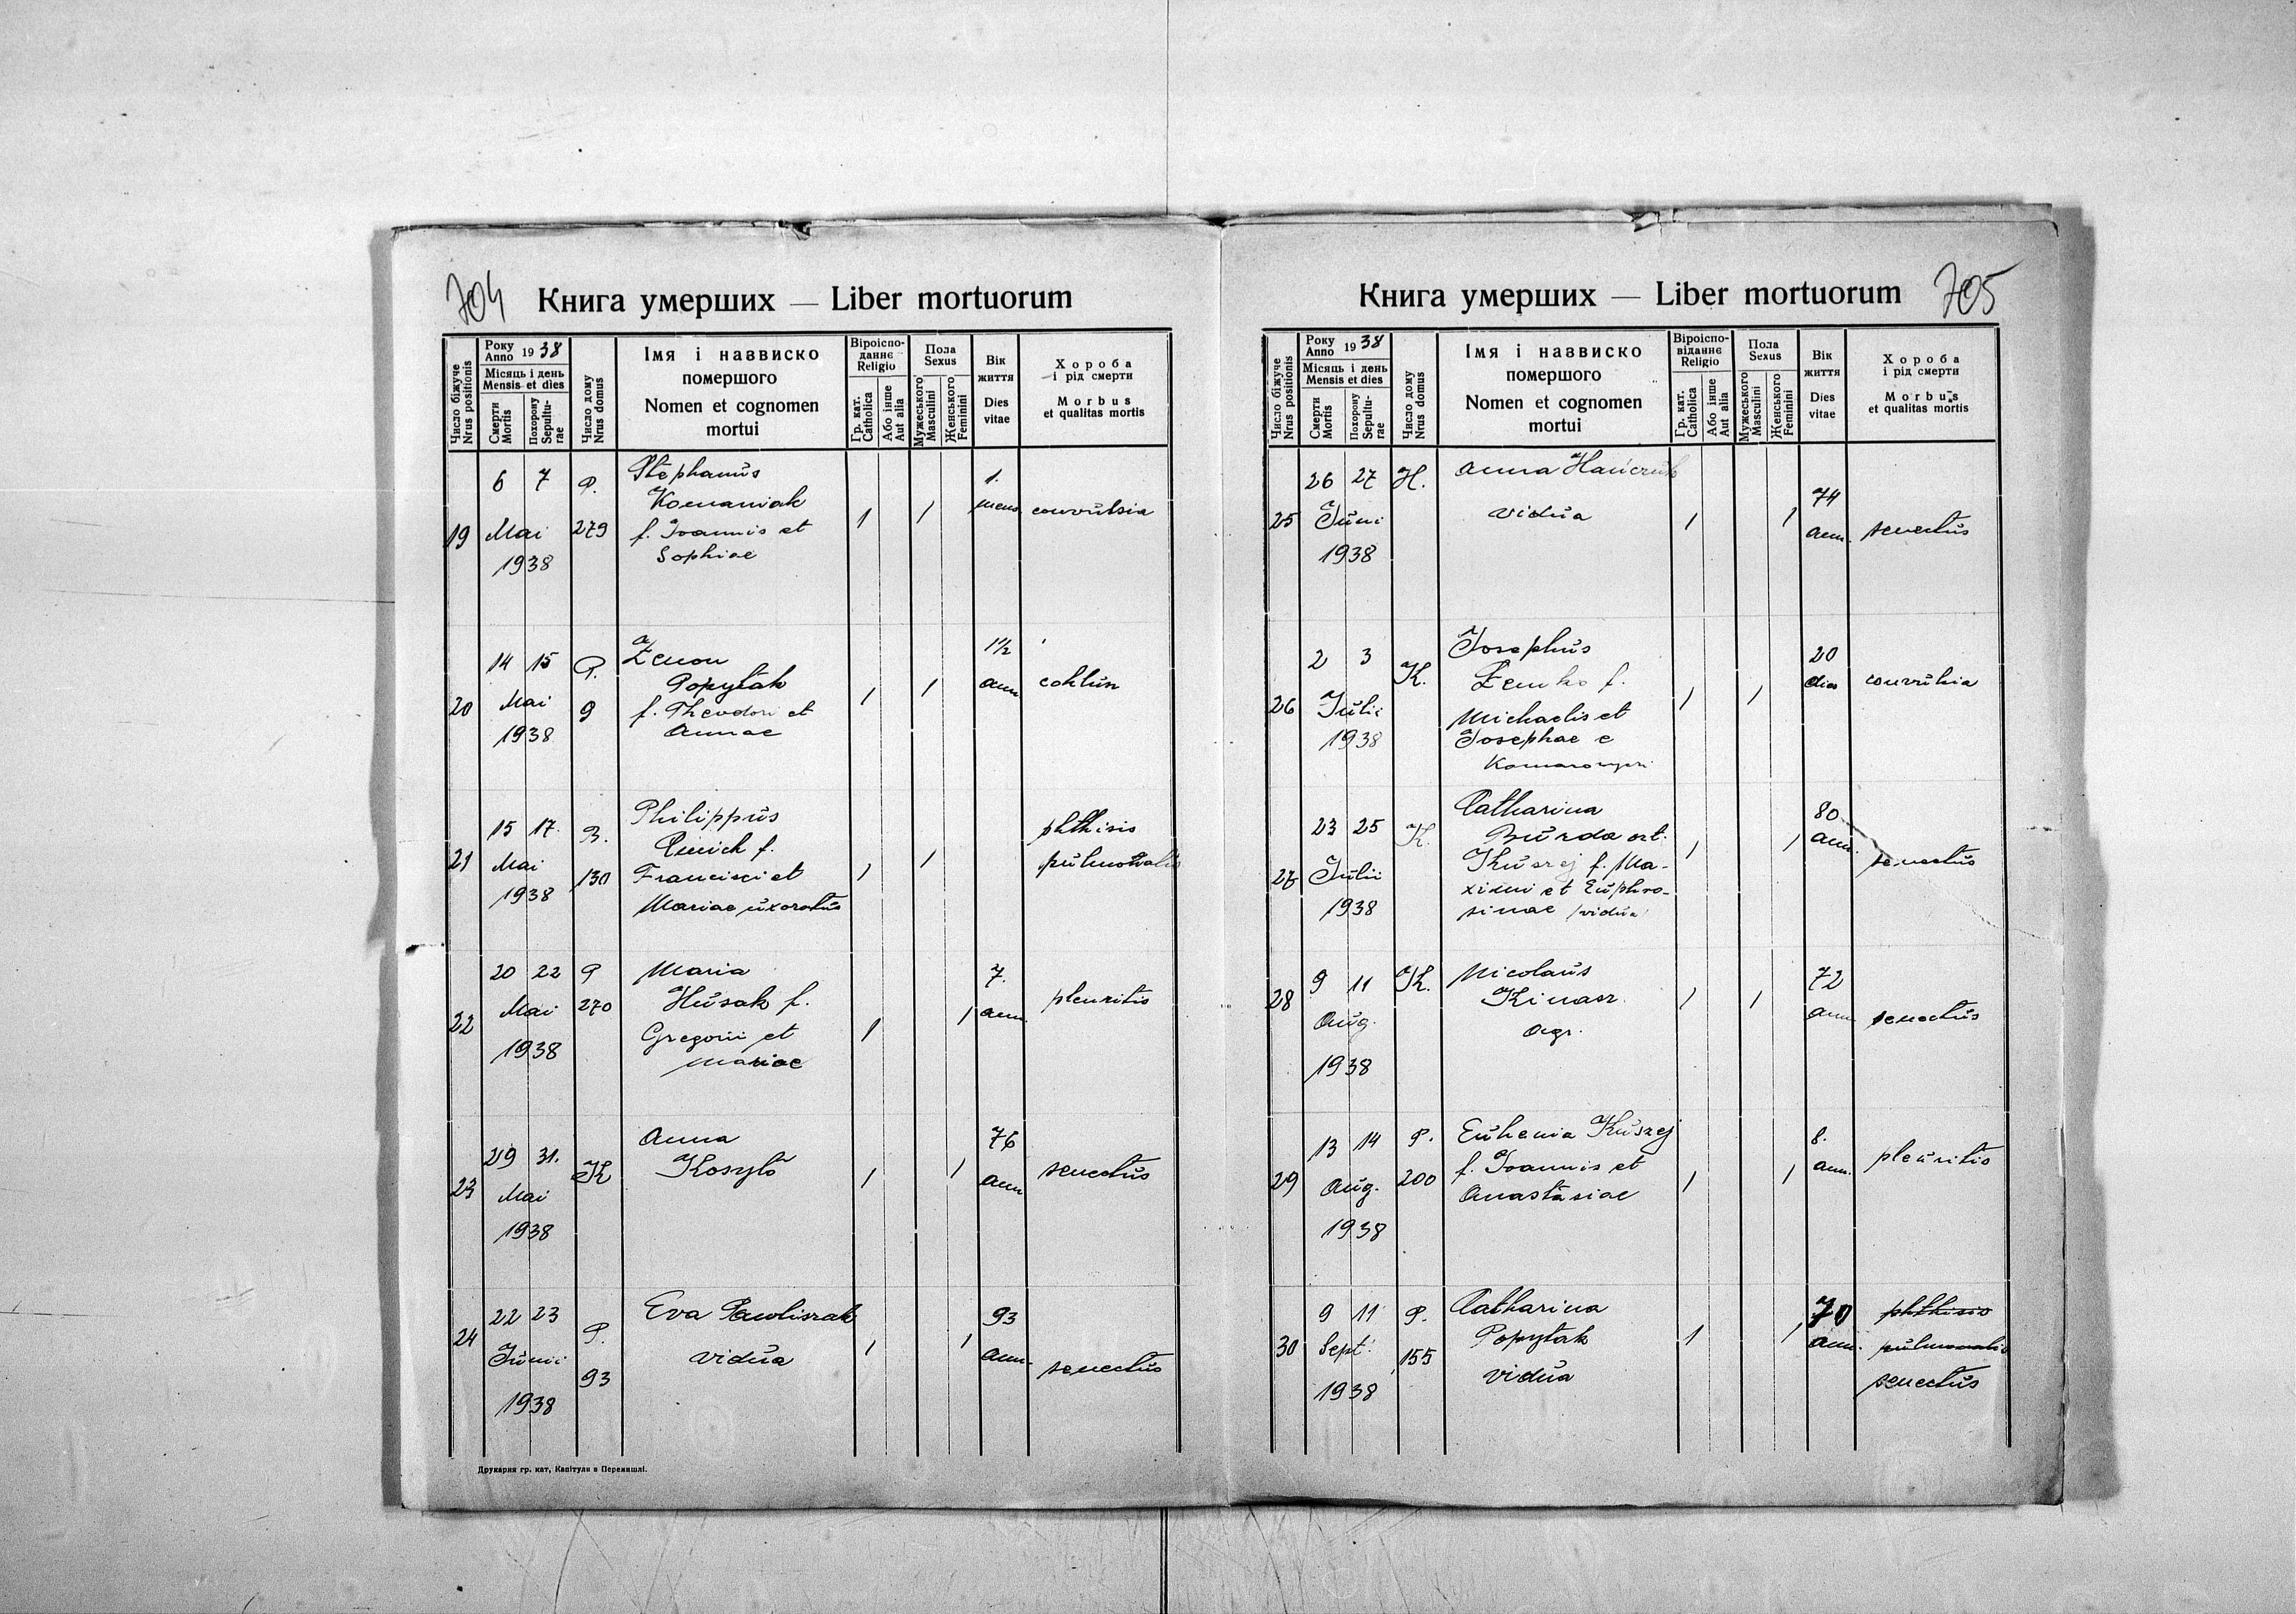 704
Книга умерших — Liber mortuorum
Число біжуче
Nrus positionis
Року
Anno 1938
Місяць і день
Mensis et dies
Смерти
Mortis
Похорону
Sepultu-
rae
Число дому
Nrus domus
Імя і назвиско
помершого
Nomen et cognomen
mortui
Віроіспо-
данне
Religio
Гр. кат.
Catholica
Або інше
Aut alia
Пола
Sexus
Мужеського
Masculini
Женського
Feminini
Вік
життя
Dies
vitae
Хороба
і рід смерти
Morbus
et qualitas mortis
19
6 7
Mai
1938
P.
279
Stephanus
Komaniak
f. Joannis et
Sophiae
1
1
1.
mens.
convulsia
20
14 15
Mai
1938
P.
9
Zenon
Popytak
f. Theodori et
Annae
1
1
1 1/2
ann
21
15 17.
Mai
1938
B.
130
Philippus
f.
Francisci et
Mariae uxoratus
1
1
phthisis
pulmonalis
22
20 22
Mai
1938
P
270
Maria
Husak f.
Gregorii et
Mariae
1
1
7.
ann.
pleuritis
23
29 31.
Mai
1938
K
Anna
Kosyło
1
1
76
ann
senectus
24
22 23
Junii
1938
P.
93
Eva Pawliszak
vidua
1
1
93
ann.
senectus
Друкарня гр. кат, Капітули в Перемишлі.
705
Книга умерших — Liber mortuorum
Число біжуче
Nrus positionis
Року
Anno 1938
Місяць і день
Mensis et dies
Смерти
Mortis
Похорону
Sepultu-
rae
Число дому
Nrus domus
Імя і назвиско
помершого
Nomen et cognomen
mortui
Віроіспо-
віданне
Religio
Гр. кат.
Catholica
Або інше
Aut alia
Пола
Sexus
Мужеського
Masculini
Женського
Feminini
Вік
життя
Dies
vitae
Хороба
і рід смерти
Morbus
et qualitas mortis
25
26 27
Juni
1938
H.
Anna
vidua
1
1
74
ann.
senectus
26
2 3
Julii
1938
K.
Josephus
Zenko f.
Michaelis et
Josephae e
1
1
20
dies
convulsia
27
23 25
Julii
1938
K.
Catharina
Burda ort.
Kuszej f. Ma-
ximi et Euphro-
sinae vidua
1
1
80
ann.
senectus
28
9 11
Aug.
1938
K.
Nicolaus
Kinasz
agr.
1
1
72
ann
senectus
29
13 14
Aug.
1938
P.
200
Euhenia Kuszej
f. Joannis et
Anastasiae
1
1
8.
ann.
pleuritis
30
9 11
Sept.
1938
P.
155
Catharina
Popytak
vidua
1
1
70
ann.
phthisis
pulmonalis
senectus